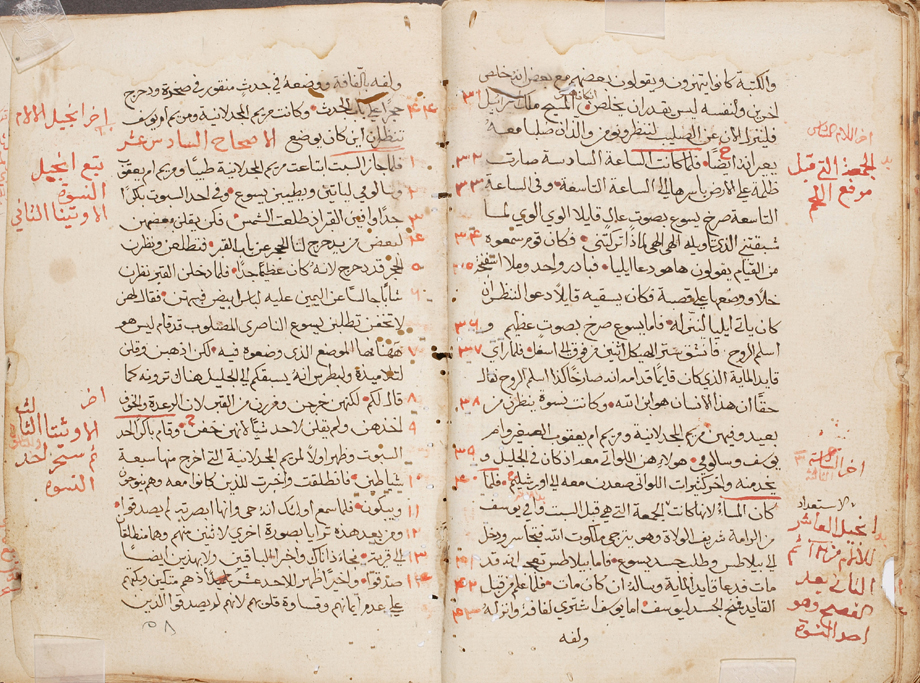 والكتبة كانوا يتهزون ويقولون بعضهم مع بعض انه خلص
اخرين ولنفسه ليس يقدر ان يخلص ان كان هو المسيح ملك اسرائيل
فلينزل الان عن الصليب لننظر ونومن واللذان صلبا معه
يعيرانه ايضا فلما كانت الساعة السادسة صارت
ظلمة على الارض باسرها الى الساعة التاسعة وفي الساعة
التاسعة صرخ يسوع بصوت عال قايلا الوي الوي لما
شبقتني الذي تاويله الهي الهي لماذا تركتني فكان قوم سمعوه
من القيام يقولون ها هو دعا ايليا فبادر واحد وملا اسفنجة
خلا ووضعها على قصبة فكان يسقيه قايلا دعوا لننظر ان
كان ياتي ايليا لينزله فاما يسوع صرخ بصوت عظيم و
اسلم الروح فانشق ستر الهيكل اثنين من فوق الى اسفل فلما راي
قايد الماية الذي كان قايما قدامه انه صارخا كذا اسلم الروح قال
حقا ان هذا الانسان هو ابن الله وكانت نسوة ينظرن من
بعيد وفيهن مريم المجدلانية ومريم ام يعقوب الصغير وام
يوسف وسالومي هولاء هن اللواتي معه اذ كان في الجليل و
يخدمنه واخر كثيرات اللواتي صعدن معه الى اورشليم فلما
كان المساء لانها كانت الجمعة التي هي قبل السبت واتي يوسف
من الرامة شريف الولاة وهو يترجى ملكوت الله فتجاسر ودخل
الى بيلاطس وطلب جسد يسوع فاما بيلاطس تعجب انه قد
مات فدعا قايد الماية وساله ان كان مات فلما علم من قبل
القايد فمنح الجسد ليوسف اما يوسف اشترى لفافة وانزله
ولفه
الجمعة التي قبل
مرفع اللحم
الاستعداد
انجيل العاشر
للالام
الثاني بعد
الفصح وهو
احد النسوة
ولفه باللفافة ووضعه في حدث منقور في صخرة ودحرج
حجرا على باب الحدث وكانت مريم المجدلانية ومريم ام يوسف
تنظران اين كان يوضع الاصحاح السادس عشر
فلما جاز السبت ابتاعت مريم المجدلانية طيبا ومريم ام يعقوب
وسالومي لياتين ويطيبن يسوع وفي احد السبوت بكرا
جدا وافين القبر اذ طلعت الشمس فكن يقلن بعضهن
لبعض من يدحرج لنا الحجر عن باب القبر فتطلعن ونظرن
الحجر قد دحرج لانه كان عظيما جدا فلما دخلن القبر نظرن
شابا جالسا عن اليمين عليه لباس ابيض فبهتن فقال لهن
لا تخفن تطلبن يسوع الناصري المصلوب قد قام ليس هو
ههنا ها الموضع الذي وضعوه فيه لكن اذهبن وقلن
لتلاميذه ولبطرس انه يسبقكم الى الجليل هناك ترونه كما
قال لكم لكنهن خرجن وفررن من القبر لان الرعدة والخوف
اخذهن ولم يقلن لاحد شيا لانهن خفن وقام باكر احد
السبوت وظهر اولا لمريم المجدلانية التي اخرج منها سبعة
شياطين فانطلقت واخبرت للذين كانوا معه وهم ينوحون
ويبكون فلما سمع اوليك انه حي وانها ابصرته لم يصدقوا
ومن بعد هذه ترايا بصورة اخرى لاثنين منهم وهما منطلقا
الى قرية فجاء ذانك واخبرا الباقين ولا بهذين ايضا
صدقوا واخيرا ظهر للاحد عشر تلميذا وهم متكين وبكتهم
على عدم ايمانهم وقساوة قلوبهم لانهم لم يصدقوا الذين
اخر انجيل الالام
يتبع انجيل
النسوة
الاوثينا الثاني
اخر
الاوثينا الثالث
ثم سحر احد
النسوة
٥٨